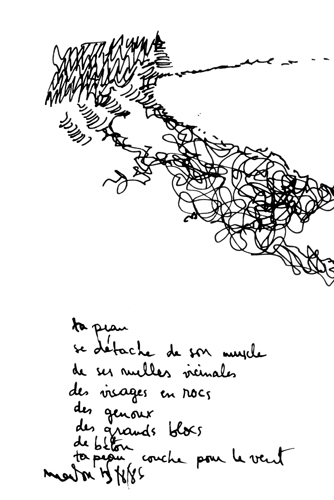 ta peau
se détache de son muscle
de ses ruelles vicinales
des visages en rocs
des genoux
des grands blocs
de béton
ta peau couche pour le vent